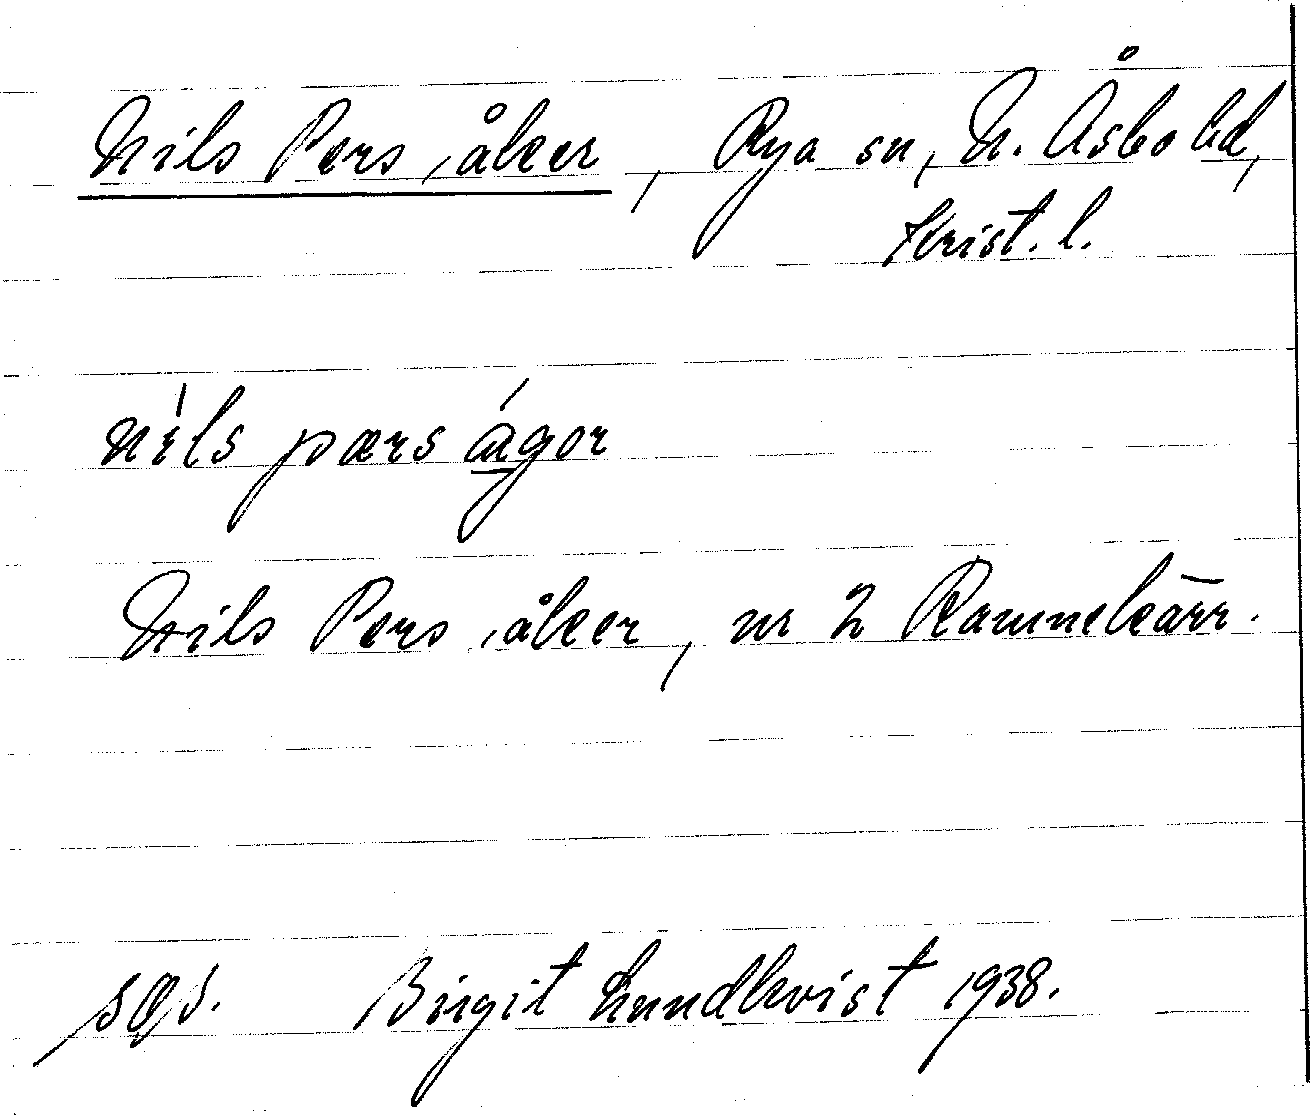 Nils Pers åker, Rya sn, N. Åsbo hd,
Krist. l.
níls pærs ágor
Nils Pers åker, nr 2 Rammekärr.
Birgit Lundkvist 1938.